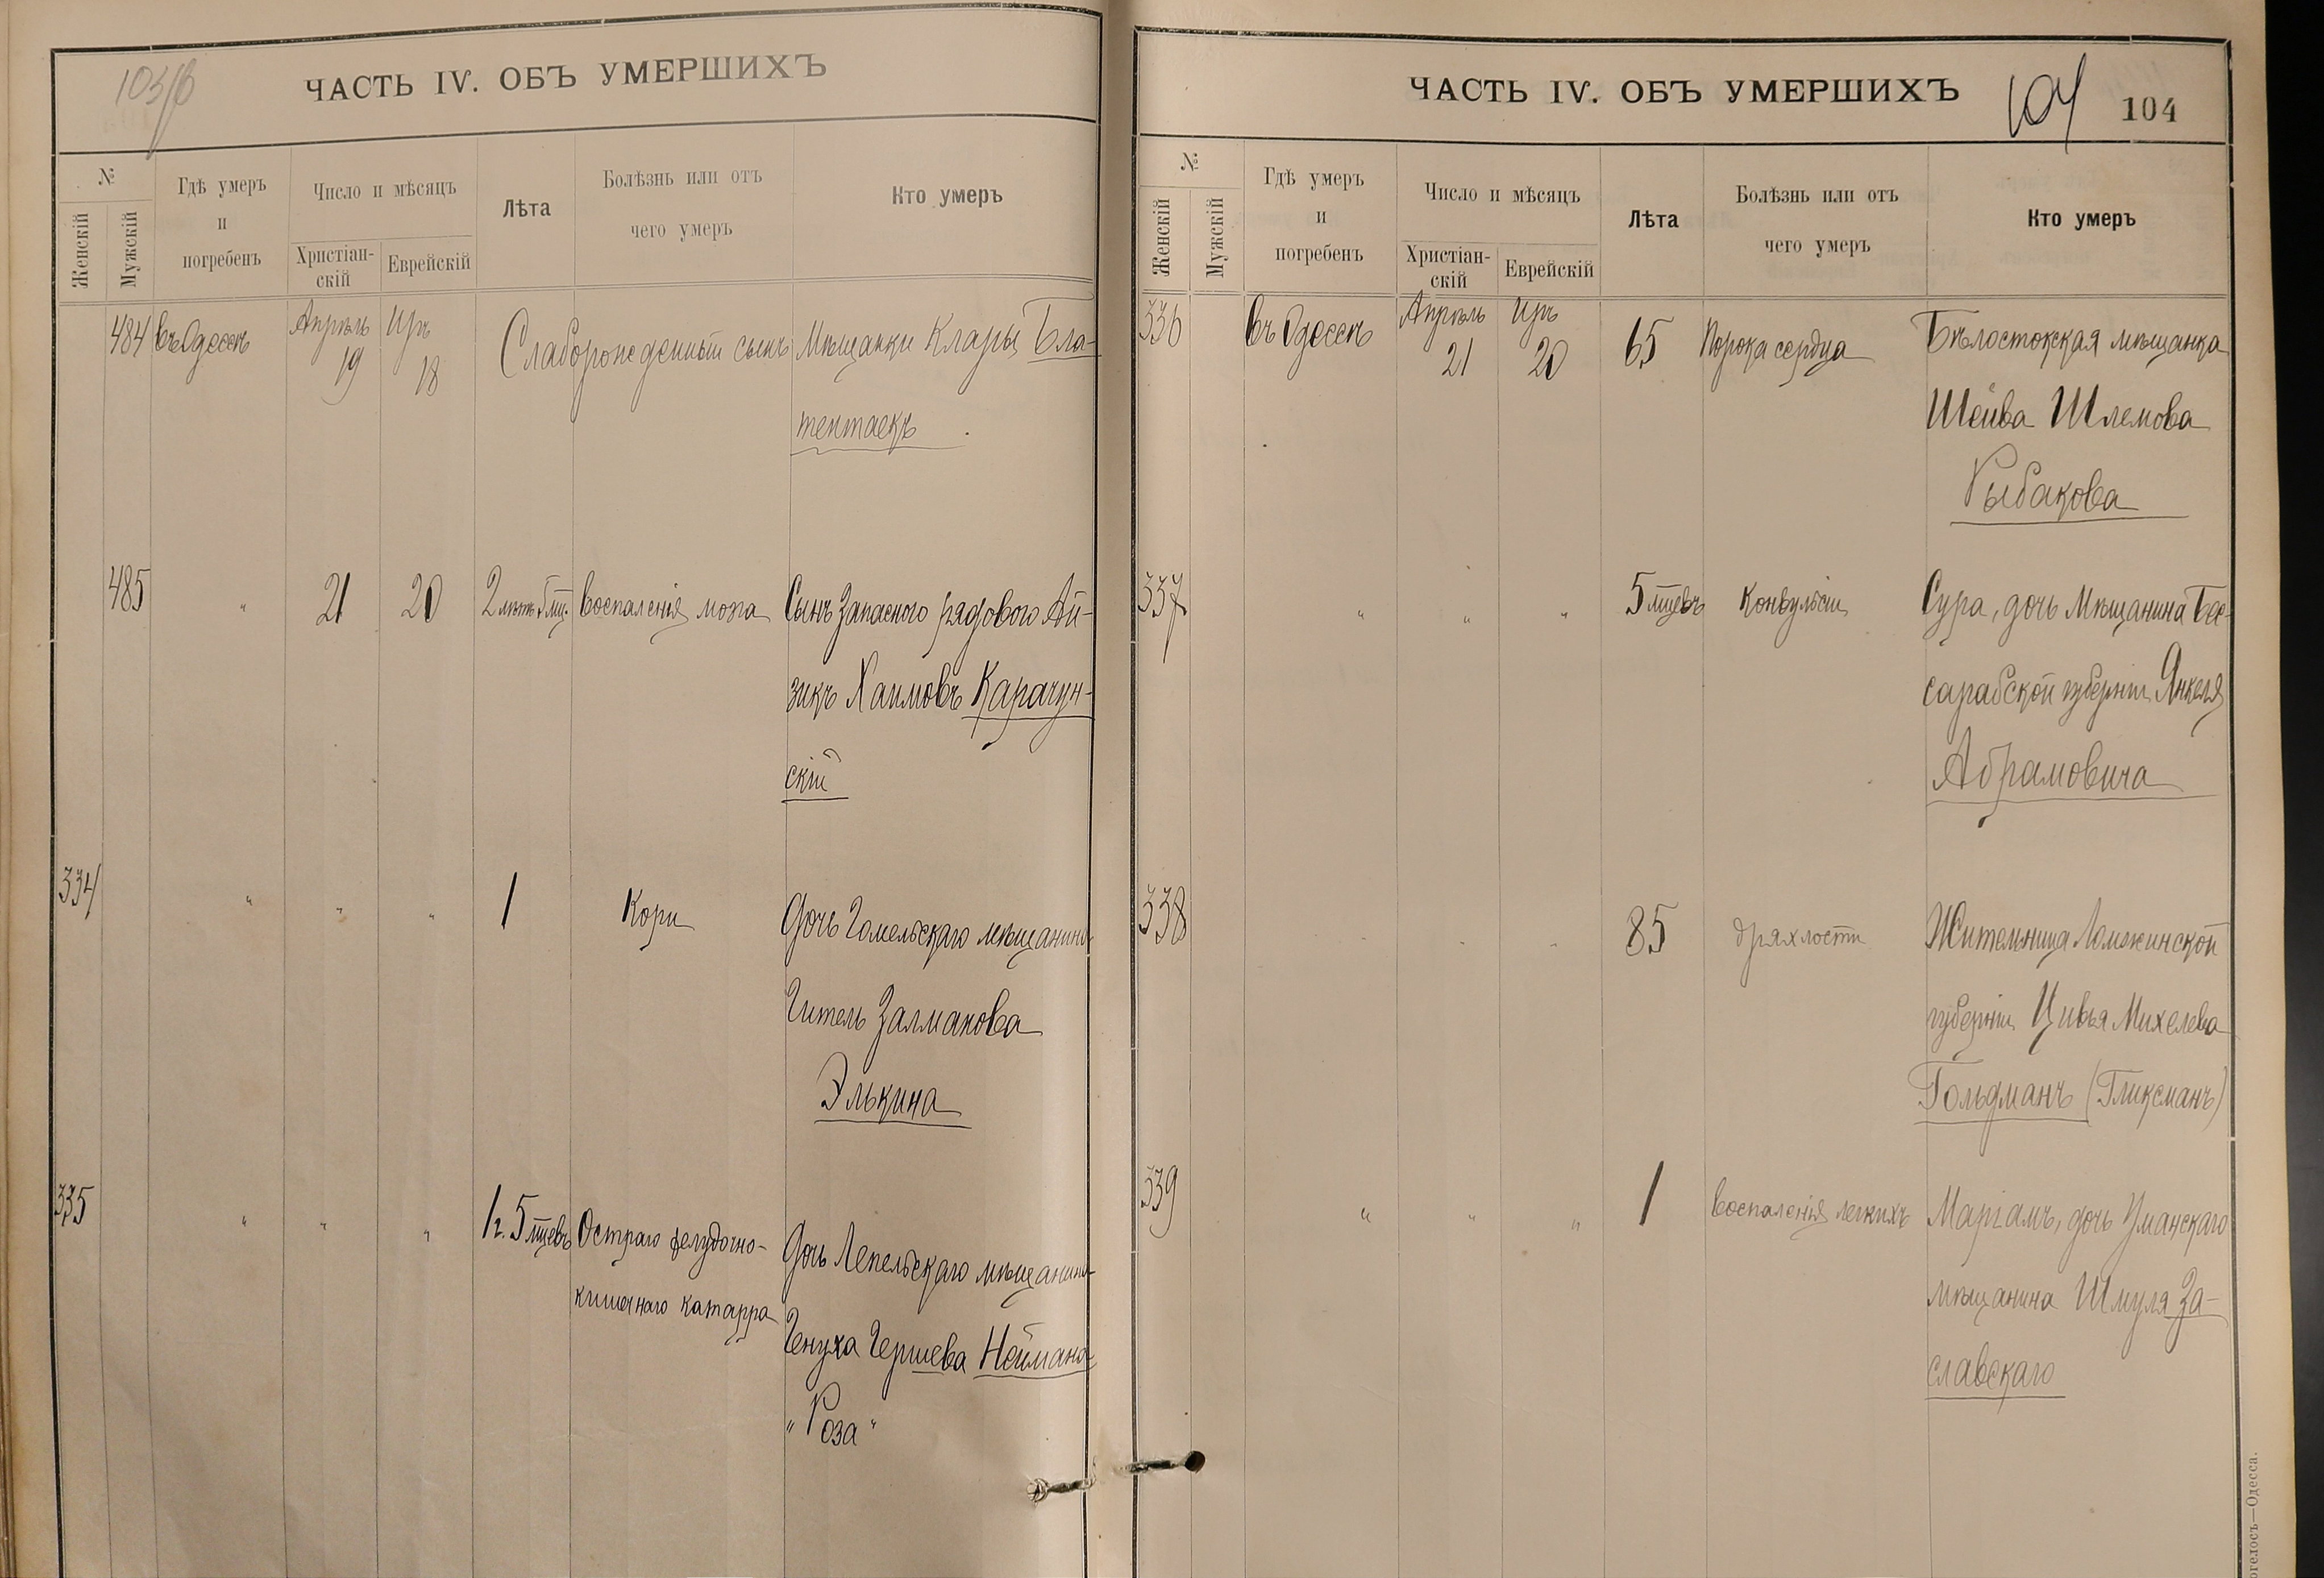 103/б
ЧАСТЬ IV. ОБЪ УМЕРШИХЪ
№
Женскій
Мужскій
Гдѣ умеръ
и
погребенъ
Число и мѣсяцъ
Христіан-
скій
Еврейскій
Лѣта
Болѣзнь или отъ
чего умеръ
Кто умеръ
484 въ Одессѣ Апрѣль 19 Иръ 18 Слаборожденный сынъ Мѣщанки Клары Бла-
тентаекъ
485 " 21 20 2 лѣтъ 5 мц. Воспаленія мозга Сынъ Запасного рядового Ай-
зикъ Хаимовъ Карачун-
скій
334 " " " 1 Кори Дочь Гомельскаго мѣщанина
Гитель Залманова
Элькина
335 " " " 1 г. 5 мцевъ Остраго желудочно- Дочь Лепельскаго мѣщанина
кишечнаго катарра
Генуха Гершева Неймана
"Роза"
ЧАСТЬ IV. ОБЪ УМЕРШИХЪ
104
104
№
Женскій
Мужскій
Гдѣ умеръ
и
погребенъ
Число и мѣсяцъ
Христіан-
скій
Еврейскій
Лѣта
Болѣзнь или отъ
чего умеръ
Кто умеръ
336 Въ Одессѣ Апрѣль 21 Иръ 20 65 Порока сердца Бѣлостокская мѣщанка
Шейва Шлемова
Рыбакова
337 " " " 5 мцевъ Конвульсіи Сура, дочь Мѣщанина Бес-
сарабской губерніи Янкеля
Абрамовича
338 " " " 85 дряхлости Жительница Ломжинской
губерніи Цивья Михелева
Гольдманъ (Гликсманъ)
339 " " " 1 Воспаленія легкихъ Маріамъ, дочь Уманскаго
мѣщанина Шмуля За-
славскаго